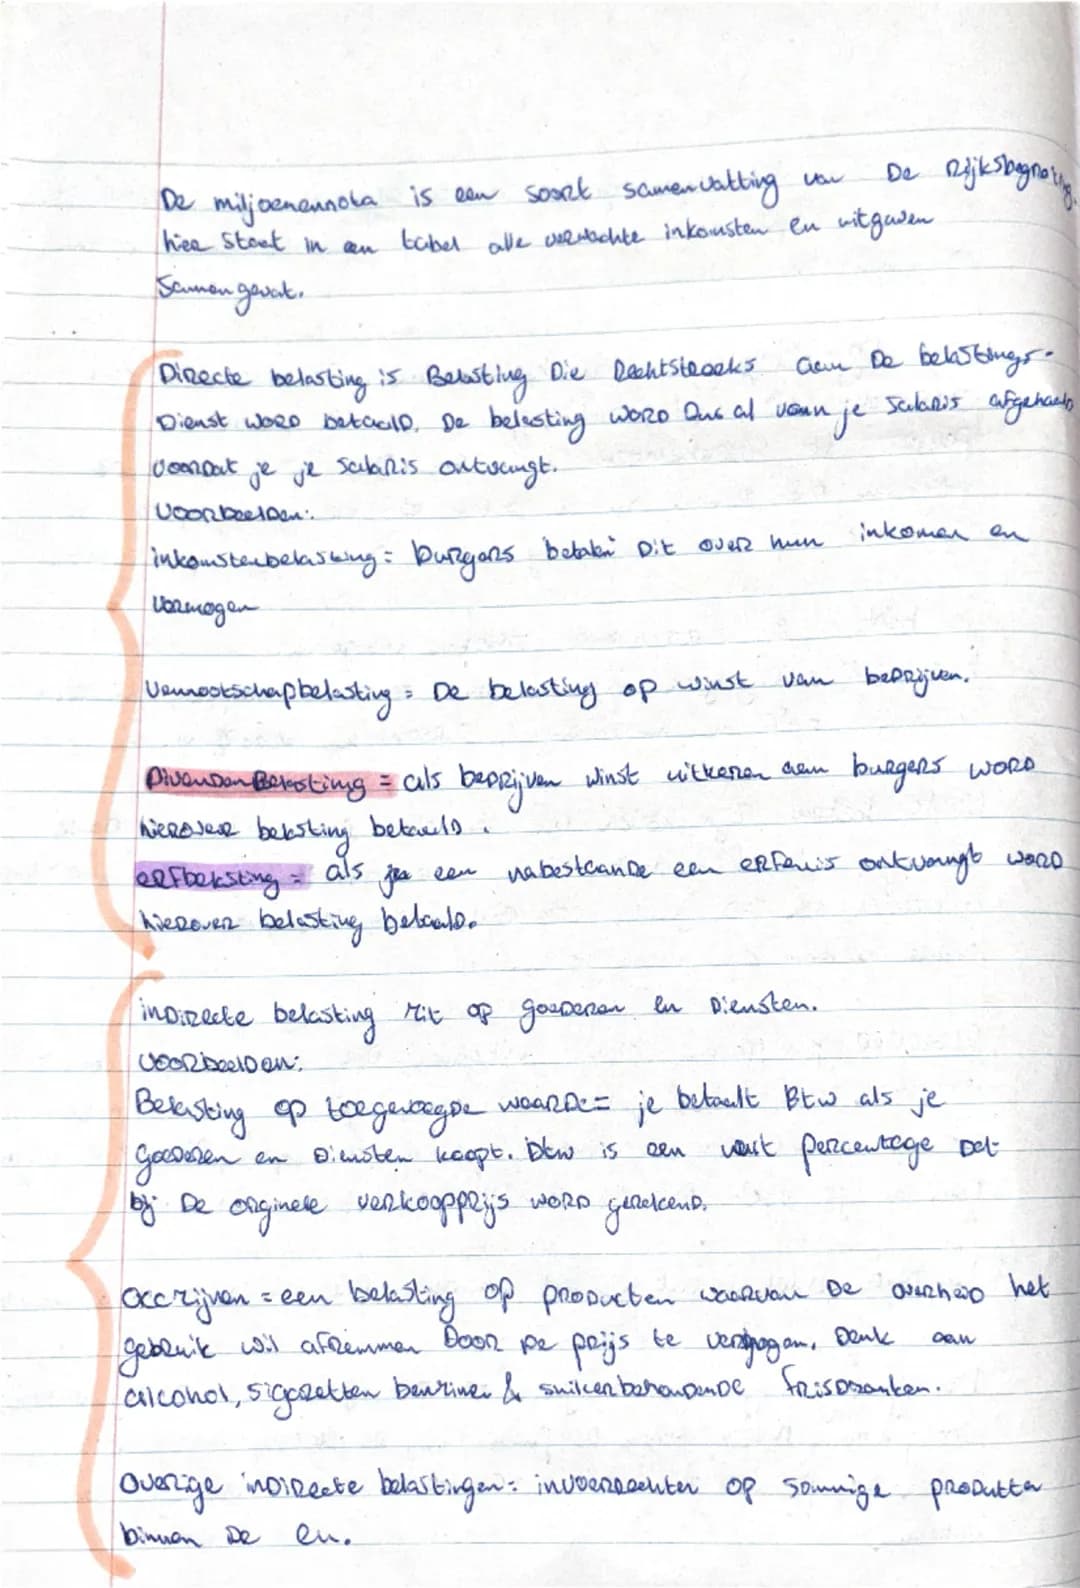 De miljoenennota is een soort samenvatting van De Rijksbegroting.
hier staat in een tabel alle verwachte inkomsten en uitgaven
Samengevat.
Directe belasting is Belasting Die Rechtstreeks aan De belastings-
Dienst word betaald. De belasting word Dus al van je salaris afgehaald
voordat je je salaris ontvangt.
Voorbeelden:
inkomstenbelasting = burgers betalen Dit over hun inkomen en
Vermogen
Vennootschapbelasting = De belasting op winst van bedrijven.
DividendenBelasting = als bedrijven winst uitkeren aan burgers word
hierover belasting betaald.
erfbelasting = als een nabestaande een erfenis ontvangt word
hierover belasting betaald.
inDirecte belasting zit op goederen en Diensten.
Voorbeelden:
Belasting op toegevoegde waarde = je betaalt Btw als je
goederen en Diensten koopt. Btw is een vast percentage Dat
bij De orginele verkoopprijs word gerekend.
Accijnzen = een belasting op producten waarvan De overheid het
gebruik wil afremmen Door De prijs te verhogen. Denk aan
alcohol, sigaretten benzine & suikerbehoudende frisdranken.
Overige inDirecte belastingen = invoerrechten op sommige producten
binnen De eu.